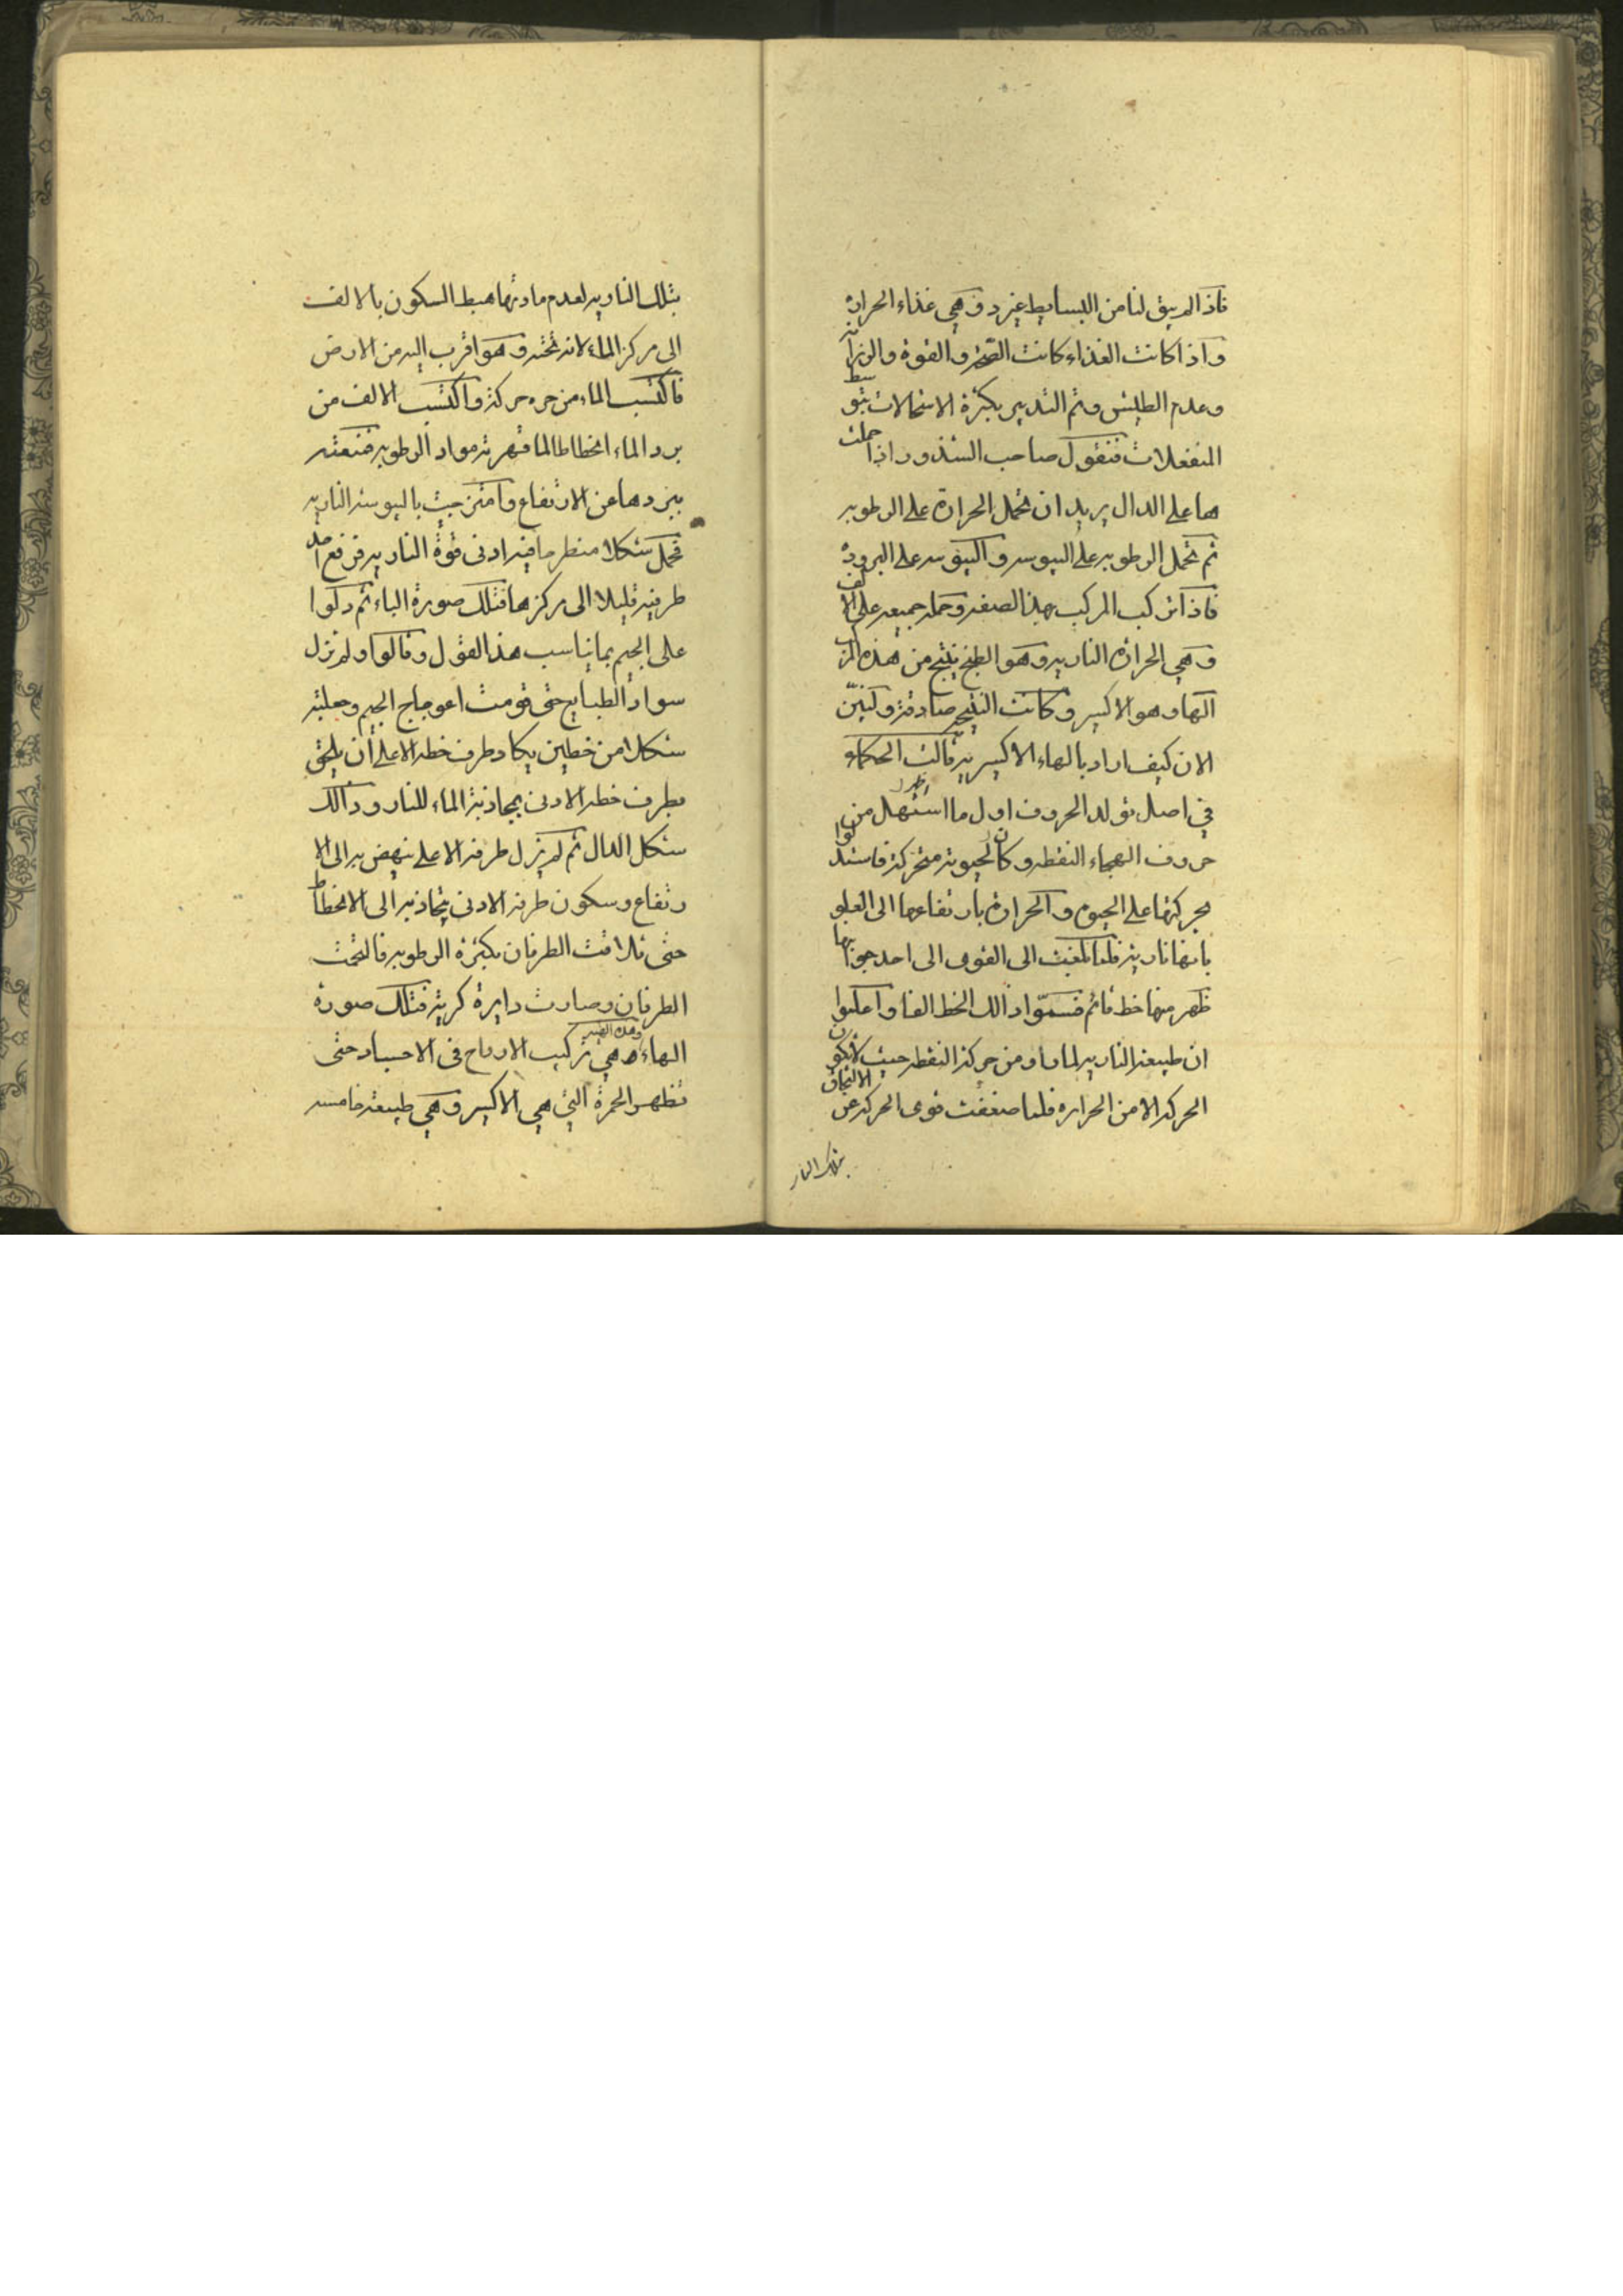 فاذا لم يبق لنا من البسايط غير د وهي غذاء الحرارة
واذا كانت الغذاء كانت الصحة والقوة والرزانة
وعدم الطيش وتم التدبير بكثرة الاستحالات بتوسط
المنفعلات فنقول صاحب الشذور اذا حملت
ها على الدال يريد ان تحمل الحرارة على الرطوبه
ثم تحمل الرطوبه على اليبوسه واليبوسه على البرودة
فاذا تركب المركب بهذا الصفه وحمله جميعه على الالف
وهي الحرارة الناريه وهو الطبخ ينتج من هذه المركب
الها وهو الاكسير وكانت النتيجه صادقة ولنبين
الان كيف اراد بالهاء الاكسيرية قالت الحكماء
في اصل تولد الحروف اول ما استهل ظهر من
حروف الهجاء النقطه وكان لحيوته متحركة فاستدلوا
بحركتها على الحيوة والحرارة بارتفاعها الى العلو
بانها نارية فلما بلغت الى القوى الى احد جوانبها
ظهر منها خط قائم فسمّوا ذالك الخط الفا واعلموا
ان طبيعة الناريه لما راو من حركة النقطه حيث لا يكون
الحركه الا من الحراره فلما ضعفت قوى الحركه عن الالتحاق
بتلك النار
بتلك الناريه لعدم مادتها هبط السكون بالالف
الى مركز الماء لانه تحته وهو اقرب اليه من الارض
فاكتسب الماء من حره حركة واكتسب الالف من
برد الماء انحطاطا لما قهرته مواد الرطوبه فمنعته
ببردها عن الارتفاع وامتزجت باليبوسة الناريه
فحمل شكلا منطرحا فيه ادنى قوة الناريه فرفع احد
طرفيه قليلا الى مركزها فتلك صورة الباء ثم دلوا
على الجيم بما يناسب هذا القول وقالوا ولم تزل
سواد الطبايع حتى قومت اعوجاج الجيم وجعلته
شكلا من خطين يكاد طرف خطه الاعلى ان يلتحق
بطرف خطه الادنى بمجاذبة الماء للنار وذالك
شكل الدال ثم لم يزل طرفه الاعلى ينهض به الى الا
رتفاع وسكون طرفه الادنى يتجاذبه الى الانحطاط
حتى تلاقت الطرفان بكثرة الرطوبه فالتحمت
الطرفان وصارت دايرة كرية فتلك صورة
الهاء ه وهذه الصبر هي تركيب الارواح في الاجساد حتى
تظهر الحمرة التي هي الاكسير وهي طبيعة خامسه